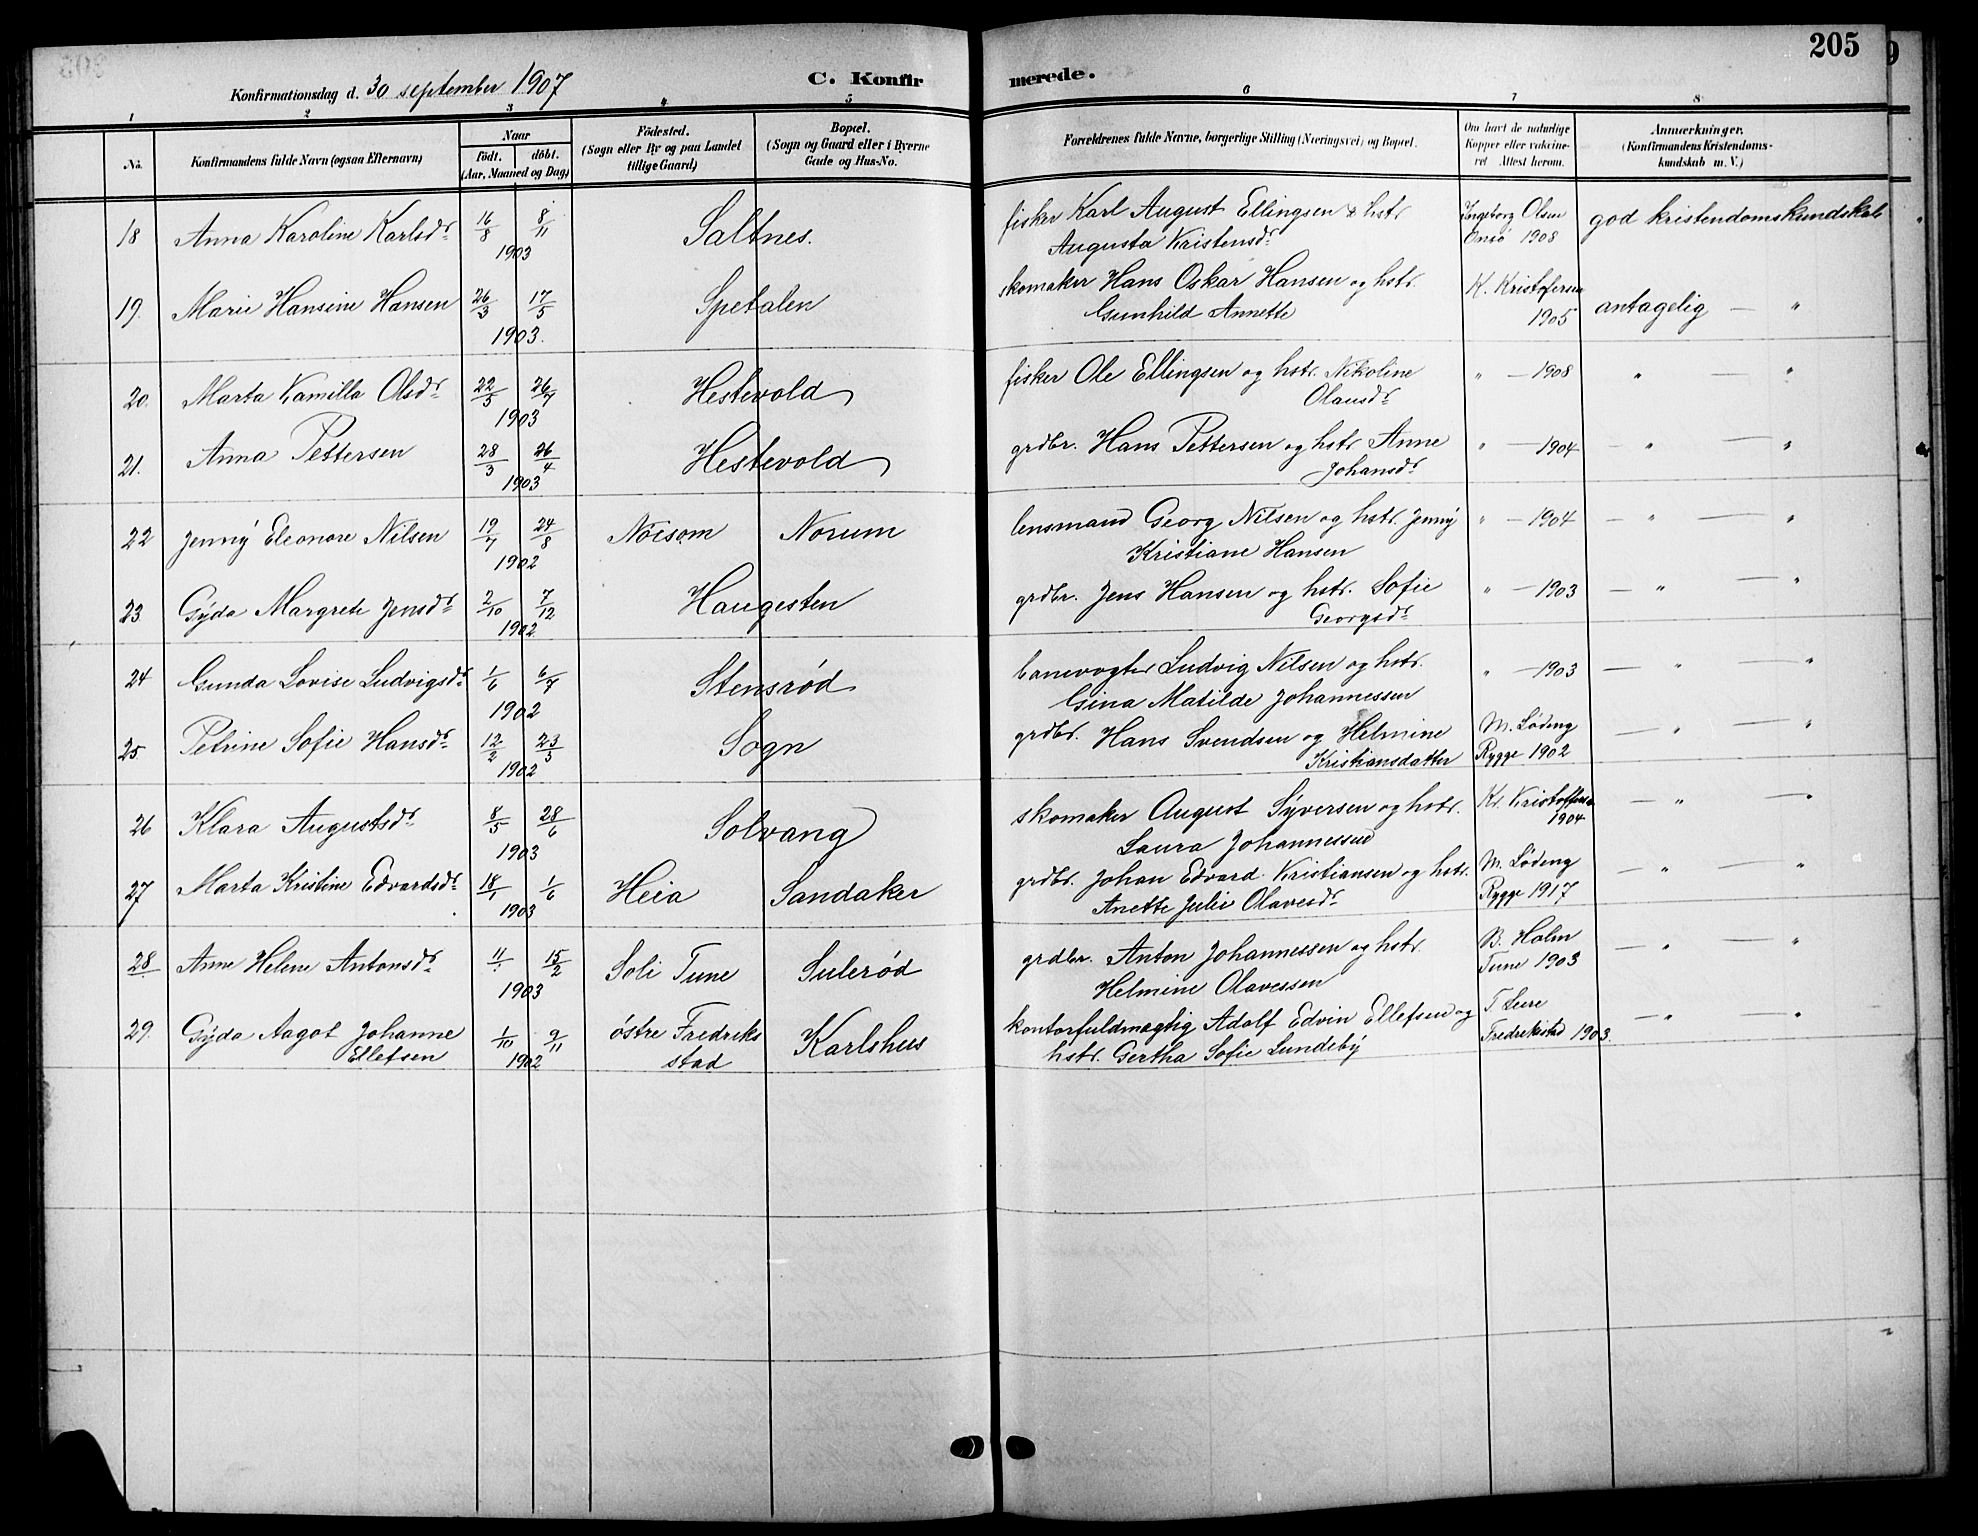 205
Konfirmationsdag d. 30 september 1907
C. Konfirmerede.
1 2 3 4 5 6 7 8
No. Konfirmandens fulde Navn (ogsaa Efternavn) Naar født. døbt. (Aar, Maaned og Dag) Fødested. (Sogn eller By og paa Landet tillige Gaard) Bopæl. (Sogn og Gaard eller i Byerne Gade og Hus-No. Forældrenes fulde Navne, borgerlige Stilling (Næringsvei) og Bopæl. Om havt de naturlige Kopper eller vakcineret Attest herom. Anmærkninger. (Konfirmandens Kristendomskundskab m. V.)
18 Anna Karoline Karlsdr 16/8 8/11 1903 Saltnes. fisker Karl August Ellingsen & hstr Augusta Kristensdr Ingeborg Olsen Onsö 1908 god kristendomskundskab
19. Marie Hansine Hansen 26/3 17/5 1903. Spetalen skomaker Hans Oskar Hansen og hstr. Gunhild Annette K. Kristofersen 1905 antagelig — "
20. Marta Kamilla Olsdr 22/5 26/7 1903 Hestevold fisker Ole Ellingsen og hstr. Nikoline Olausdr " — 1908 " — "
21. Anna Pettersen 28/3 26/4 1903 Hestevold grdbr. Hans Pettersen og hstr Anne Johansdr " — 1904 — " — "
22 Jenny Eleonore Nilsen 19/7 24/8 1902 Norum lensmand Georg Nilsen og hstr. Jenny Kristiane Hansen " — 1904 — " — "
23. Gyda Margrete Jensdr 2/10 7/12 1902 Haugesten grdbr. Jens Hansen og hstr. Sofie Georgsdr " — 1903 — " — "
24 Gunda Lovise Ludvigsdr 1/6 6/7 1902 Stensrød banevogter Ludvig Nilsen og hstr. Gina Matilde Johannessen " — 1903 — " "
25. Petrine Sofie Hansdr 12/2 23/3 1902 Sogn grdbr. Hans Svendsen og Helmine Kristiansdatter M. Løding Rygge 1902 — " — "
26 Klara Augustsdr 8/5 28/6 1903 Solvang skomaker August Syversen og hstr. Laura Johannessen Kr. Kristoffersen 1904 — " — "
27 Marta Kristine Edvardsdr 18/1 1/6 1903 Heia Sandaker grdbr. Johan Edvard Kristiansen og hstr. Anette Julie Olavesdr M. Løding Rygge 1917 — " — "
28 Anne Helene Antonsdr 15/2 1903 Soli Tune Sulerød grdbr. Anton Johannessen og hstr. Helmine Olavessen B. Holm Tune 1903 — " — "
29. Gyda Aagot Johanne Ellefsen 1/10 9/11 1902 östre Fredrikstad Karlshus kontorfuldmægtig Adolf Edvin Ellefsen og hstr. Gertha Sofie Lundeby Fredrikstad 1903. — " — "